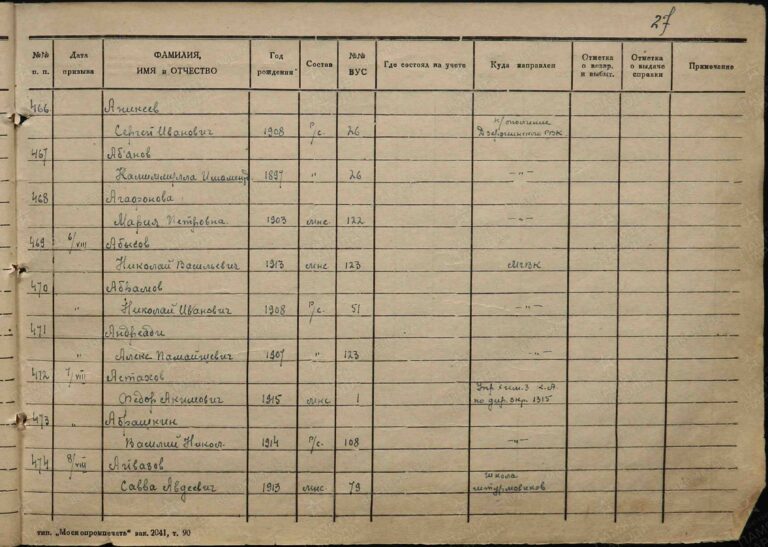 27
№№ п. п. Дата призыва ФАМИЛИЯ, ИМЯ и ОТЧЕСТВО Год рождения Состав №№ ВУС Где состоял на учете Куда направлен Отметка о возвр. и выбыт. Отметка о выдаче справки Примечание
466 Аникеев
Сергей Иванович 1908 р/с. 26 н/ополчение Дзержинского РВК
467 Абанов
1897 " 26 -"-
468 Агафонова
Мария Петровна 1903 мнс 122 -"-
469 6/VIII Абысов
Николай Васильевич 1913 мнс 123 МГВК
470 Абрамов
" Николай Иванович 1908 р/с. 51 -"-
471
Алекс. 1907 " 123 -"-
472 7/VIII Астахов
Федор Акимович 1915 мнс 1 по дир. 1315
473 " Абрашкин
Василий Никол. 1914 р/с. 108 -"-
474 8/VIII Айвазов
Савва Авдеевич 1913 мнс. 79 школа штурмовиков
тип. „Москопромпечать" зак. 2041, т. 90